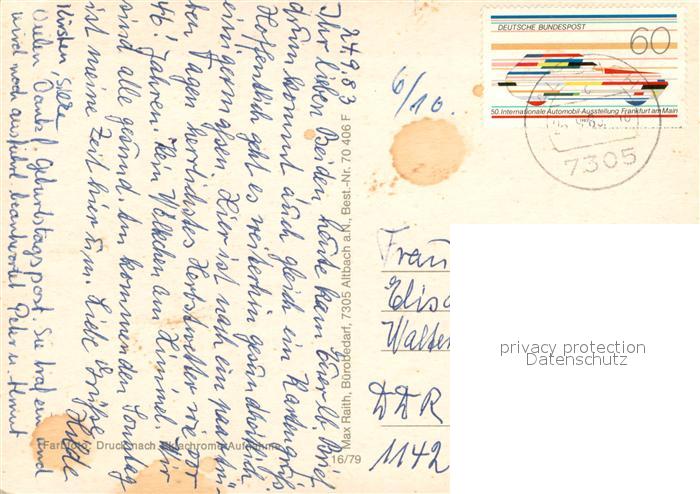 24.9.83
Ihr lieben Beiden, heute kam Euer lb. Brief
drum kommt auch gleich ein Kartengruß
Hoffentlich geht es weiterhin gesundheitlich
einigermaßen. Hier ist nach ein paar trü-
ben Tagen herrlichstes Herbstwetter wie vor
46 Jahren. Kein Wölkchen am Himmel. Wir
sind alle gesund. Am kommenden Sonntag
ist meine Zeit hier um. Liebe Grüße
Hilde
Vielen Dank f. Geburtstagspost. Sie traf ein und
wird noch ausführl. beantwortet Peter u.
Max Raith, Bürobedarf, 7305 Altbach a.N., Best.-Nr. 70 406 F
Farbfoto: Druck nach Ektachrome-Aufnahme
16/79
6/10.
DEUTSCHE BUNDESPOST
60
50. Internationale Automobil-Ausstellung Frankfurt am Main
7305
Frau
Elisa
Walter
DDR
1142
privacy protection
Datenschutz